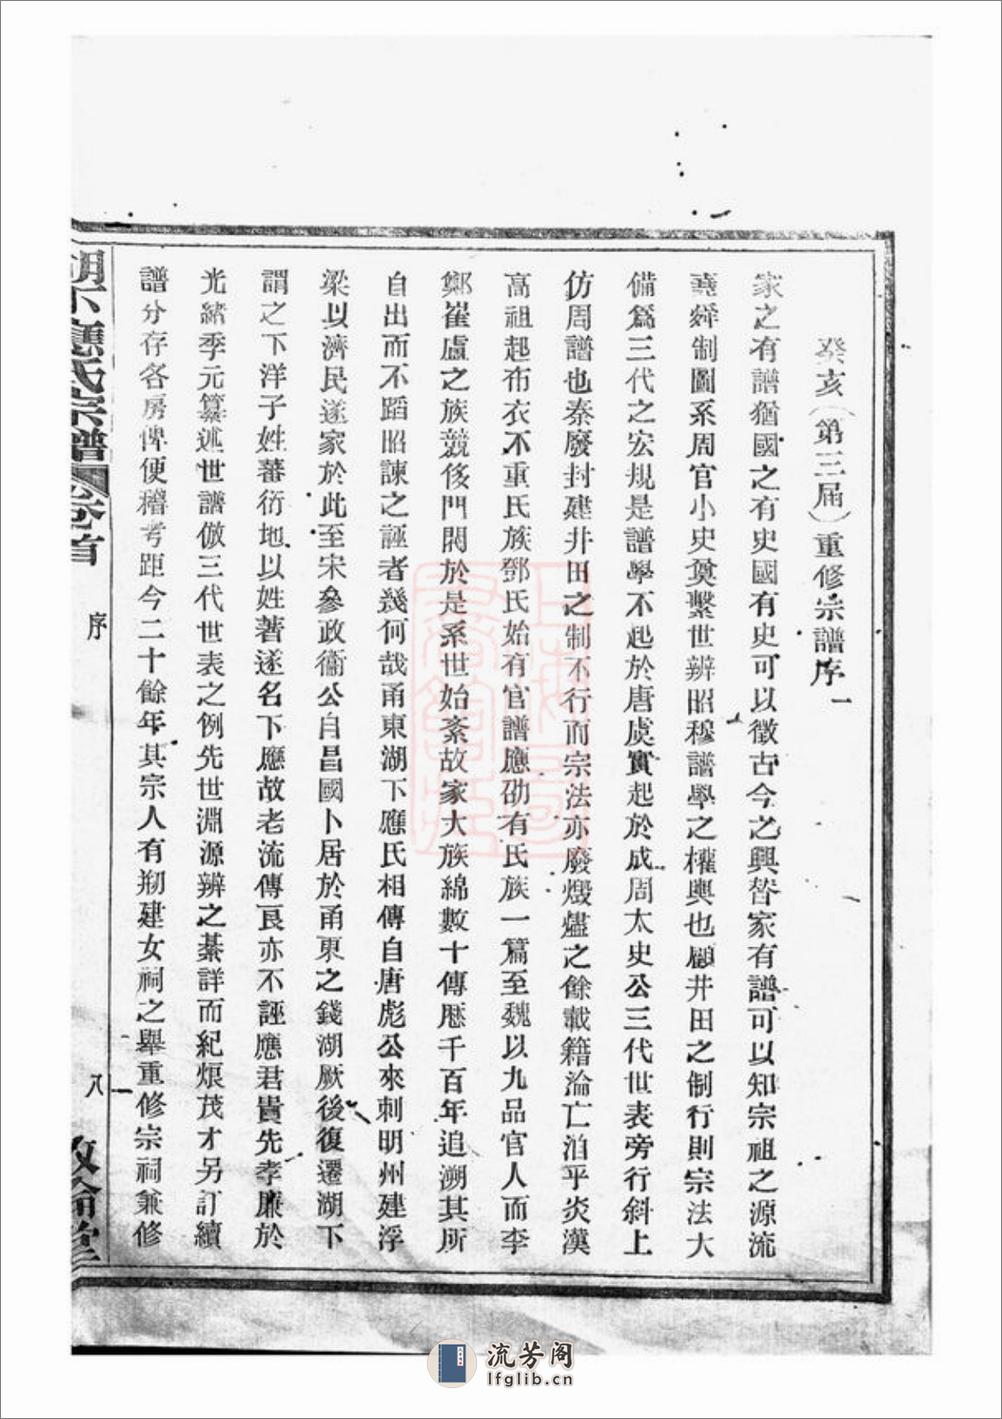 癸亥（第三届）重修宗譜序一
家之有譜猶國之有史國有史可以徵古今之興替家有譜可以知宗祖之源流
堯舜制圖系周官小史奠繫世辨昭穆譜學之權輿也顧井田之制行則宗法大
備爲三代之宏規是譜學不起於唐虞實起於成周太史公三代世表旁行斜上
仿周譜也秦廢封建井田之制不行而宗法亦廢燬燼之餘載籍淪亡洎乎炎漢
高祖起布衣不重氏族鄧氏始有官譜應劭有氏族一篇至魏以九品官人而李
鄭崔盧之族競侈門閥於是系世始紊故家大族綿數十傳歷千百年追溯其所
自出而不蹈昭諫之誣者幾何哉甬東湖下應氏相傳自唐彪公來刺明州建浮
梁以濟民遂家於此至宋參政衞公自昌國卜居於甬東之錢湖厥後復遷湖下
謂之下洋子姓蕃衍地以姓著遂名下應故老流傳良亦不誣應君貴先孝廉於
光緒季元纂述世譜倣三代世表之例先世淵源辨之綦詳而紀烺茂才另訂續
譜分存各房俾便稽考距今二十餘年其宗人有剏建女祠之舉重修宗祠兼修
湖下應氏宗譜
卷首
序
八
敦倫堂
流芳阁
lfglib.cn